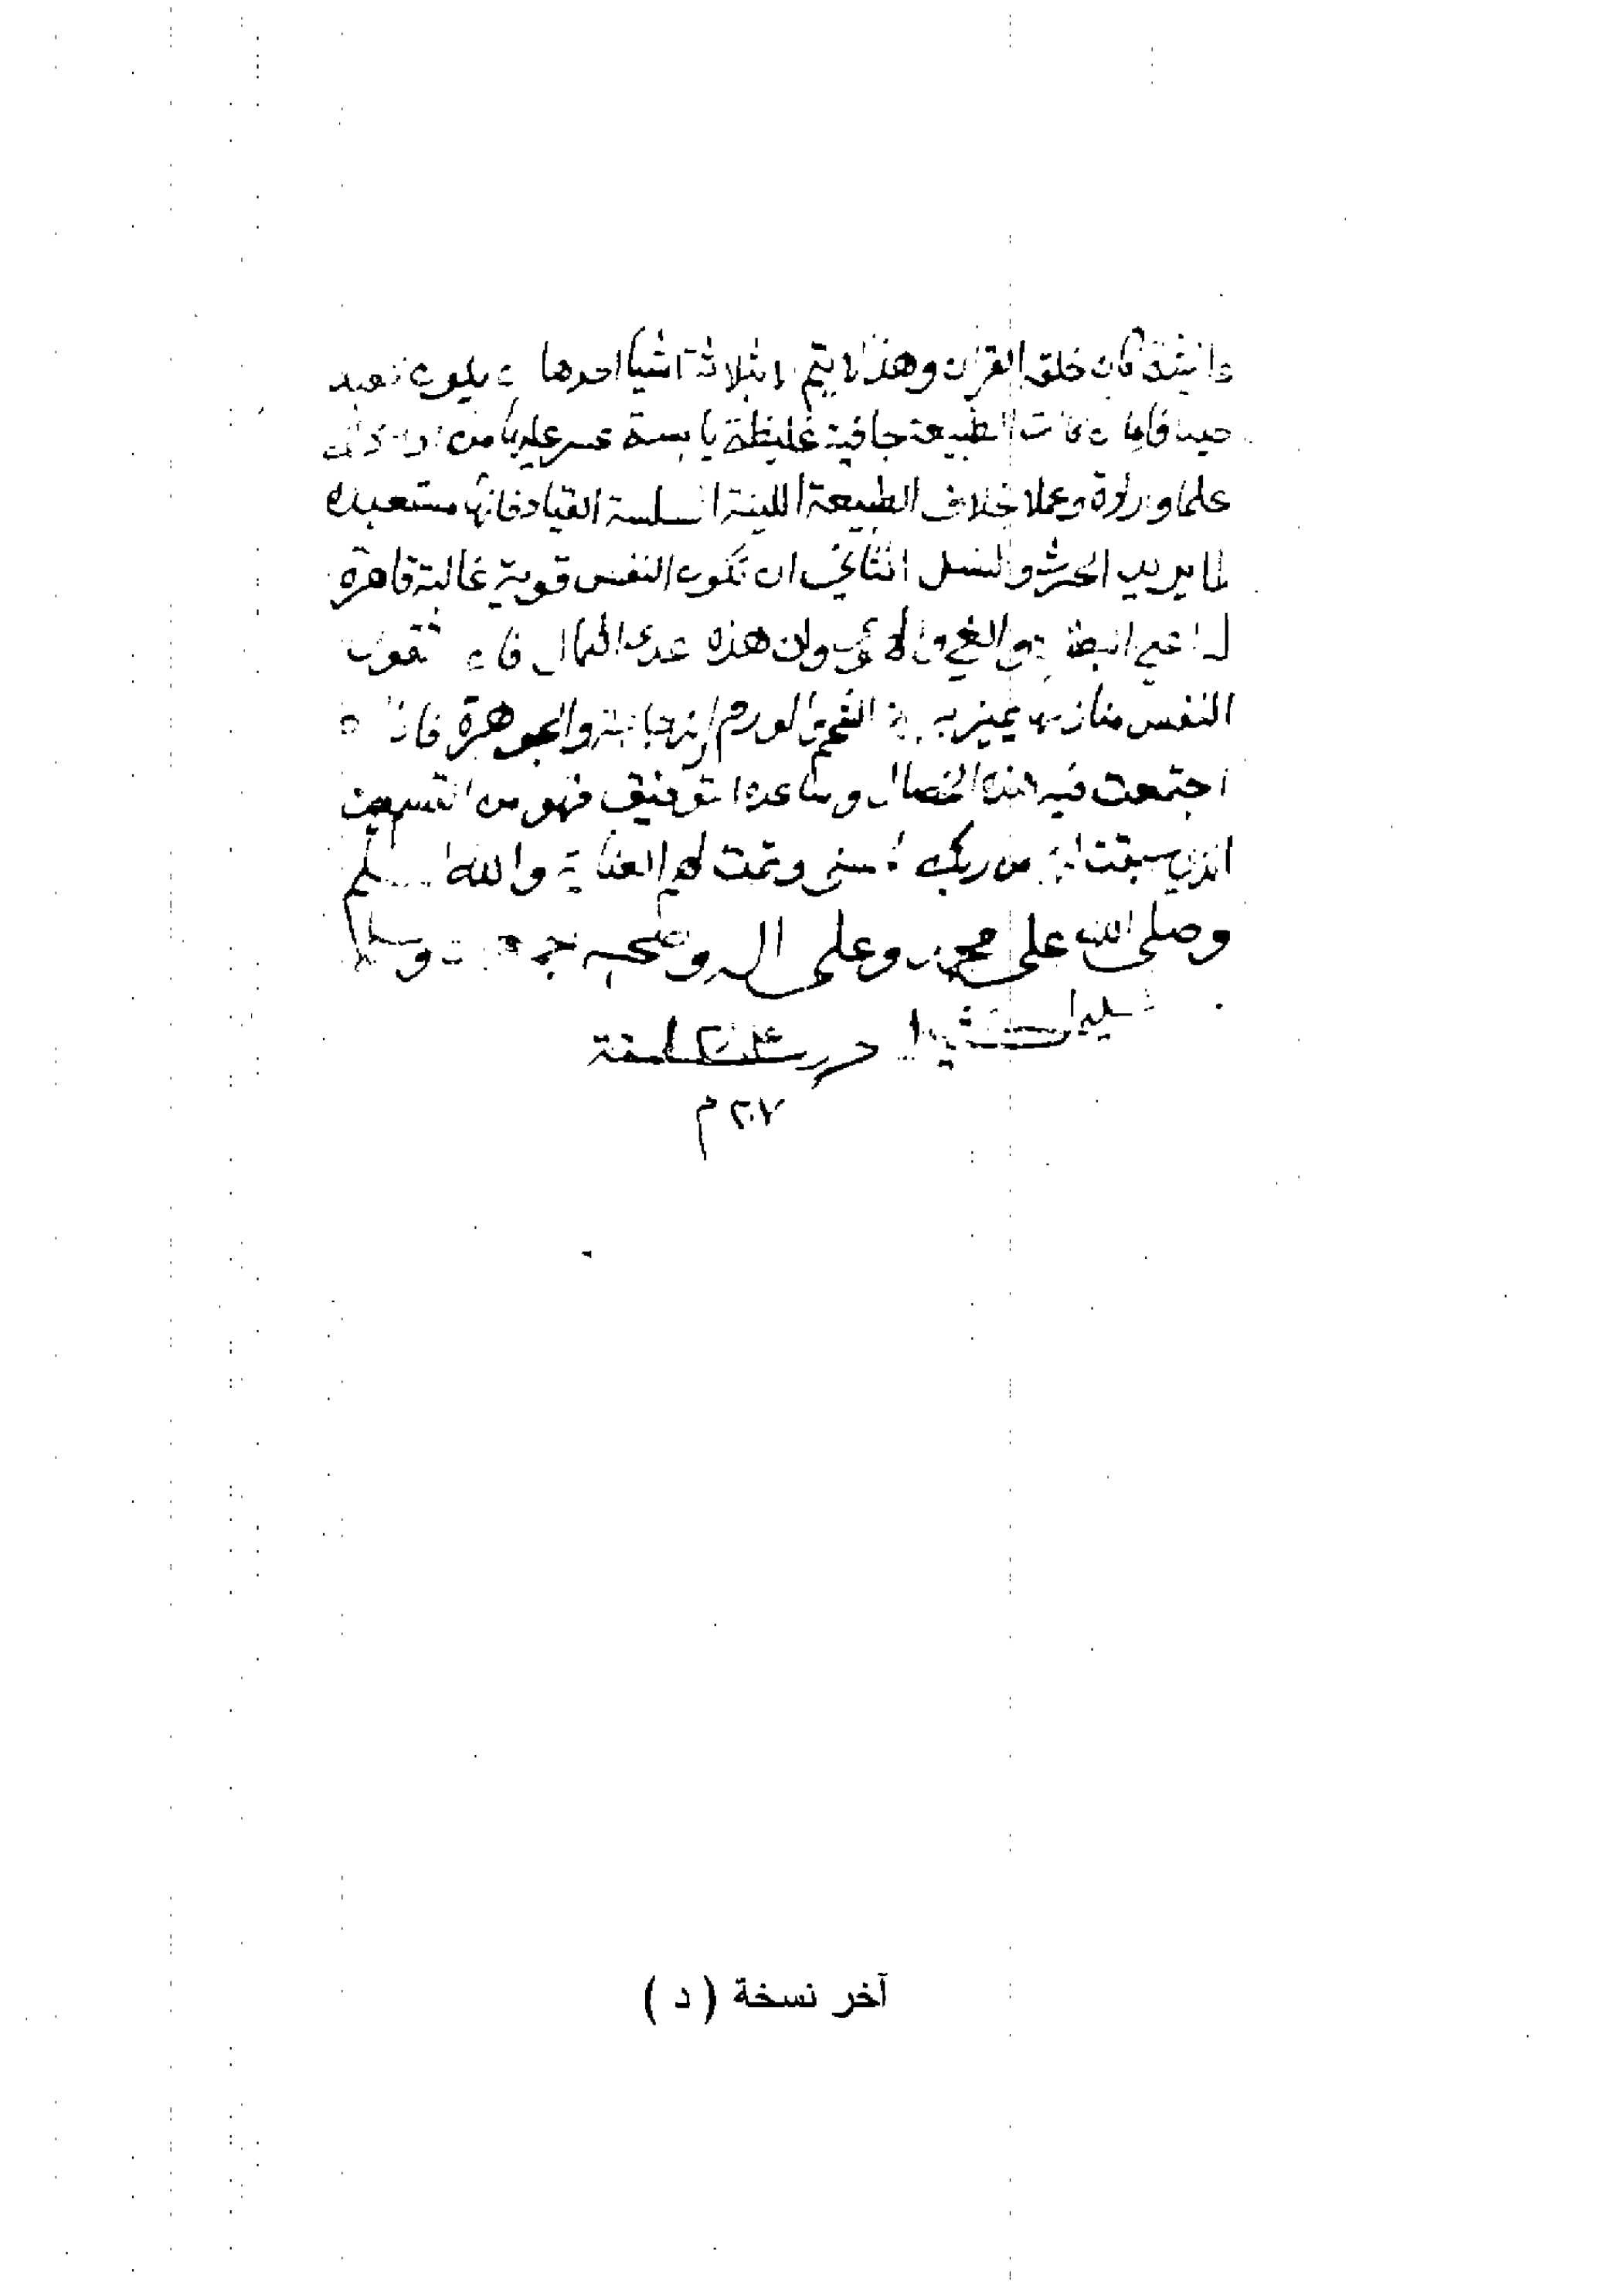 عائشة كان خلقه القرآن وهذا لا يتم الا بثلاثة اشيا احدها ان يكون العبد
فاما ان كانت الطبيعة جافية غليظة يابسة عسر عليها
علما وارادة وعملا بخلاف الطبيعة اللينة السلسة القياد فانها مستعيده
لما يريد الحرث والنسل الثاني ان تكون النفس قوية غالبة قاهرة
لدواعي البطالة والغي والهوى وان هذه عدى الكمال فان تقوت
النفس منازلها يميز به بين الشحم والورم الزجاجة والجوهرة فاذا
اجتمعت فيه هذه الخصال وساعده التوفيق فهو من القسم
الذين سبقت لهم من ربك الحسنى وتمت لهم العناية والله اعلم
وصلى الله على محمد وعلى اله وصحبه اجمعين وسلم
تسليما كثيرا حرر سنة
٢٠٧ م
آخر نسخة ( د )